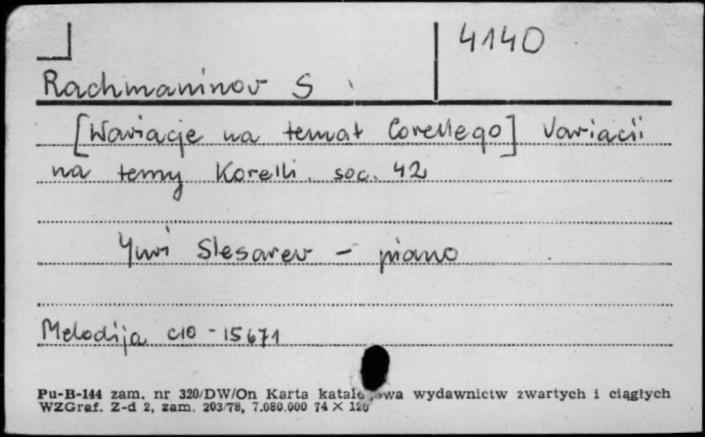 4140
Rachmaninov S
[Wariacje na temat Corellego] Variacii
na temy Korelli. soc. 42
Yuri Slesarev - piano
Melodija C10-15671
Pu-B-144 zam. nr 320/DW/On Karta katalogowa wydawnictw zwartych i ciągłych
WZGraf. Z-d 2, zam. 203/78, 7.080.000 74 X 120